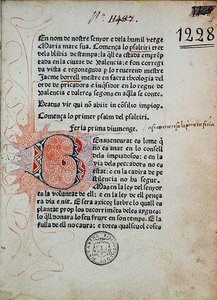 Nº. 11482.
1228
En nom de nostre senyor e dela humil verge
Maria mare sua. Comença lo psaltiri tret
dela biblia de stampa: la qĩl es estada emprẽp
tada en la ciutat de Ualencia: e fon corregi
da vista e regoneguda p lo reuerent mestre
Jaume borrell mestre en sacra theologia del
orde de pricadors e inqisidor en lo regne de
Ualencia e ualeres segons en aqlla se conte.
Beatus vir qui nõ abiit in cõsilio impiop.
Comença lo primer psalm del psaltiri.
Feria prima diumenge.
Benauenturat es lome q
no es anat en lo consell
dels impiadosos: e en la
via dels peccadors no es
estat: e en la cadira de pe
stilencia no ha segut.
Mas en la ley del senyor
es la voluntat de ell: e en la ley de ell pensa
ra dia e nit. E sera axicom larbre lo qual es
plantat prop los decorriments deles aygues:
lo qĩl donara lo seu fruyt en son temps. E la
fulla de ell no caura: e totes quantsevol coses